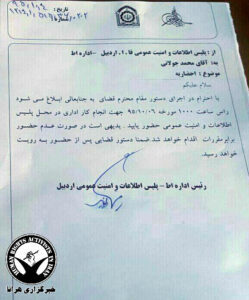 از : پلیس اطلاعات و امنیت عمومی ف.ا.ا. اردبیل – اداره اط
به: آقای محمد جولانی
موضوع : احضاریه
سلام علیکم
با احترام در اجرای دستور مقام محترم قضایی به جنابعالی ابلاغ می شود
راس ساعت ۱۰۰۰ مورخه ۹۵/۱۰/۰۶ جهت انجام کار اداری در محل پلیس
اطلاعات و امنیت عمومی حضور یابید . بدیهی است در صورت عدم حضور
برابر مقررات اقدام خواهد شد ضمنا دستور قضایی پس از حضور به رویت
خواهد رسید.
رئیس اداره اط – پلیس اطلاعات و امنیت عمومی اردبیل
HUMAN RIGHTS ACTIVISTS IN IRAN
خبرگزاری هرانا